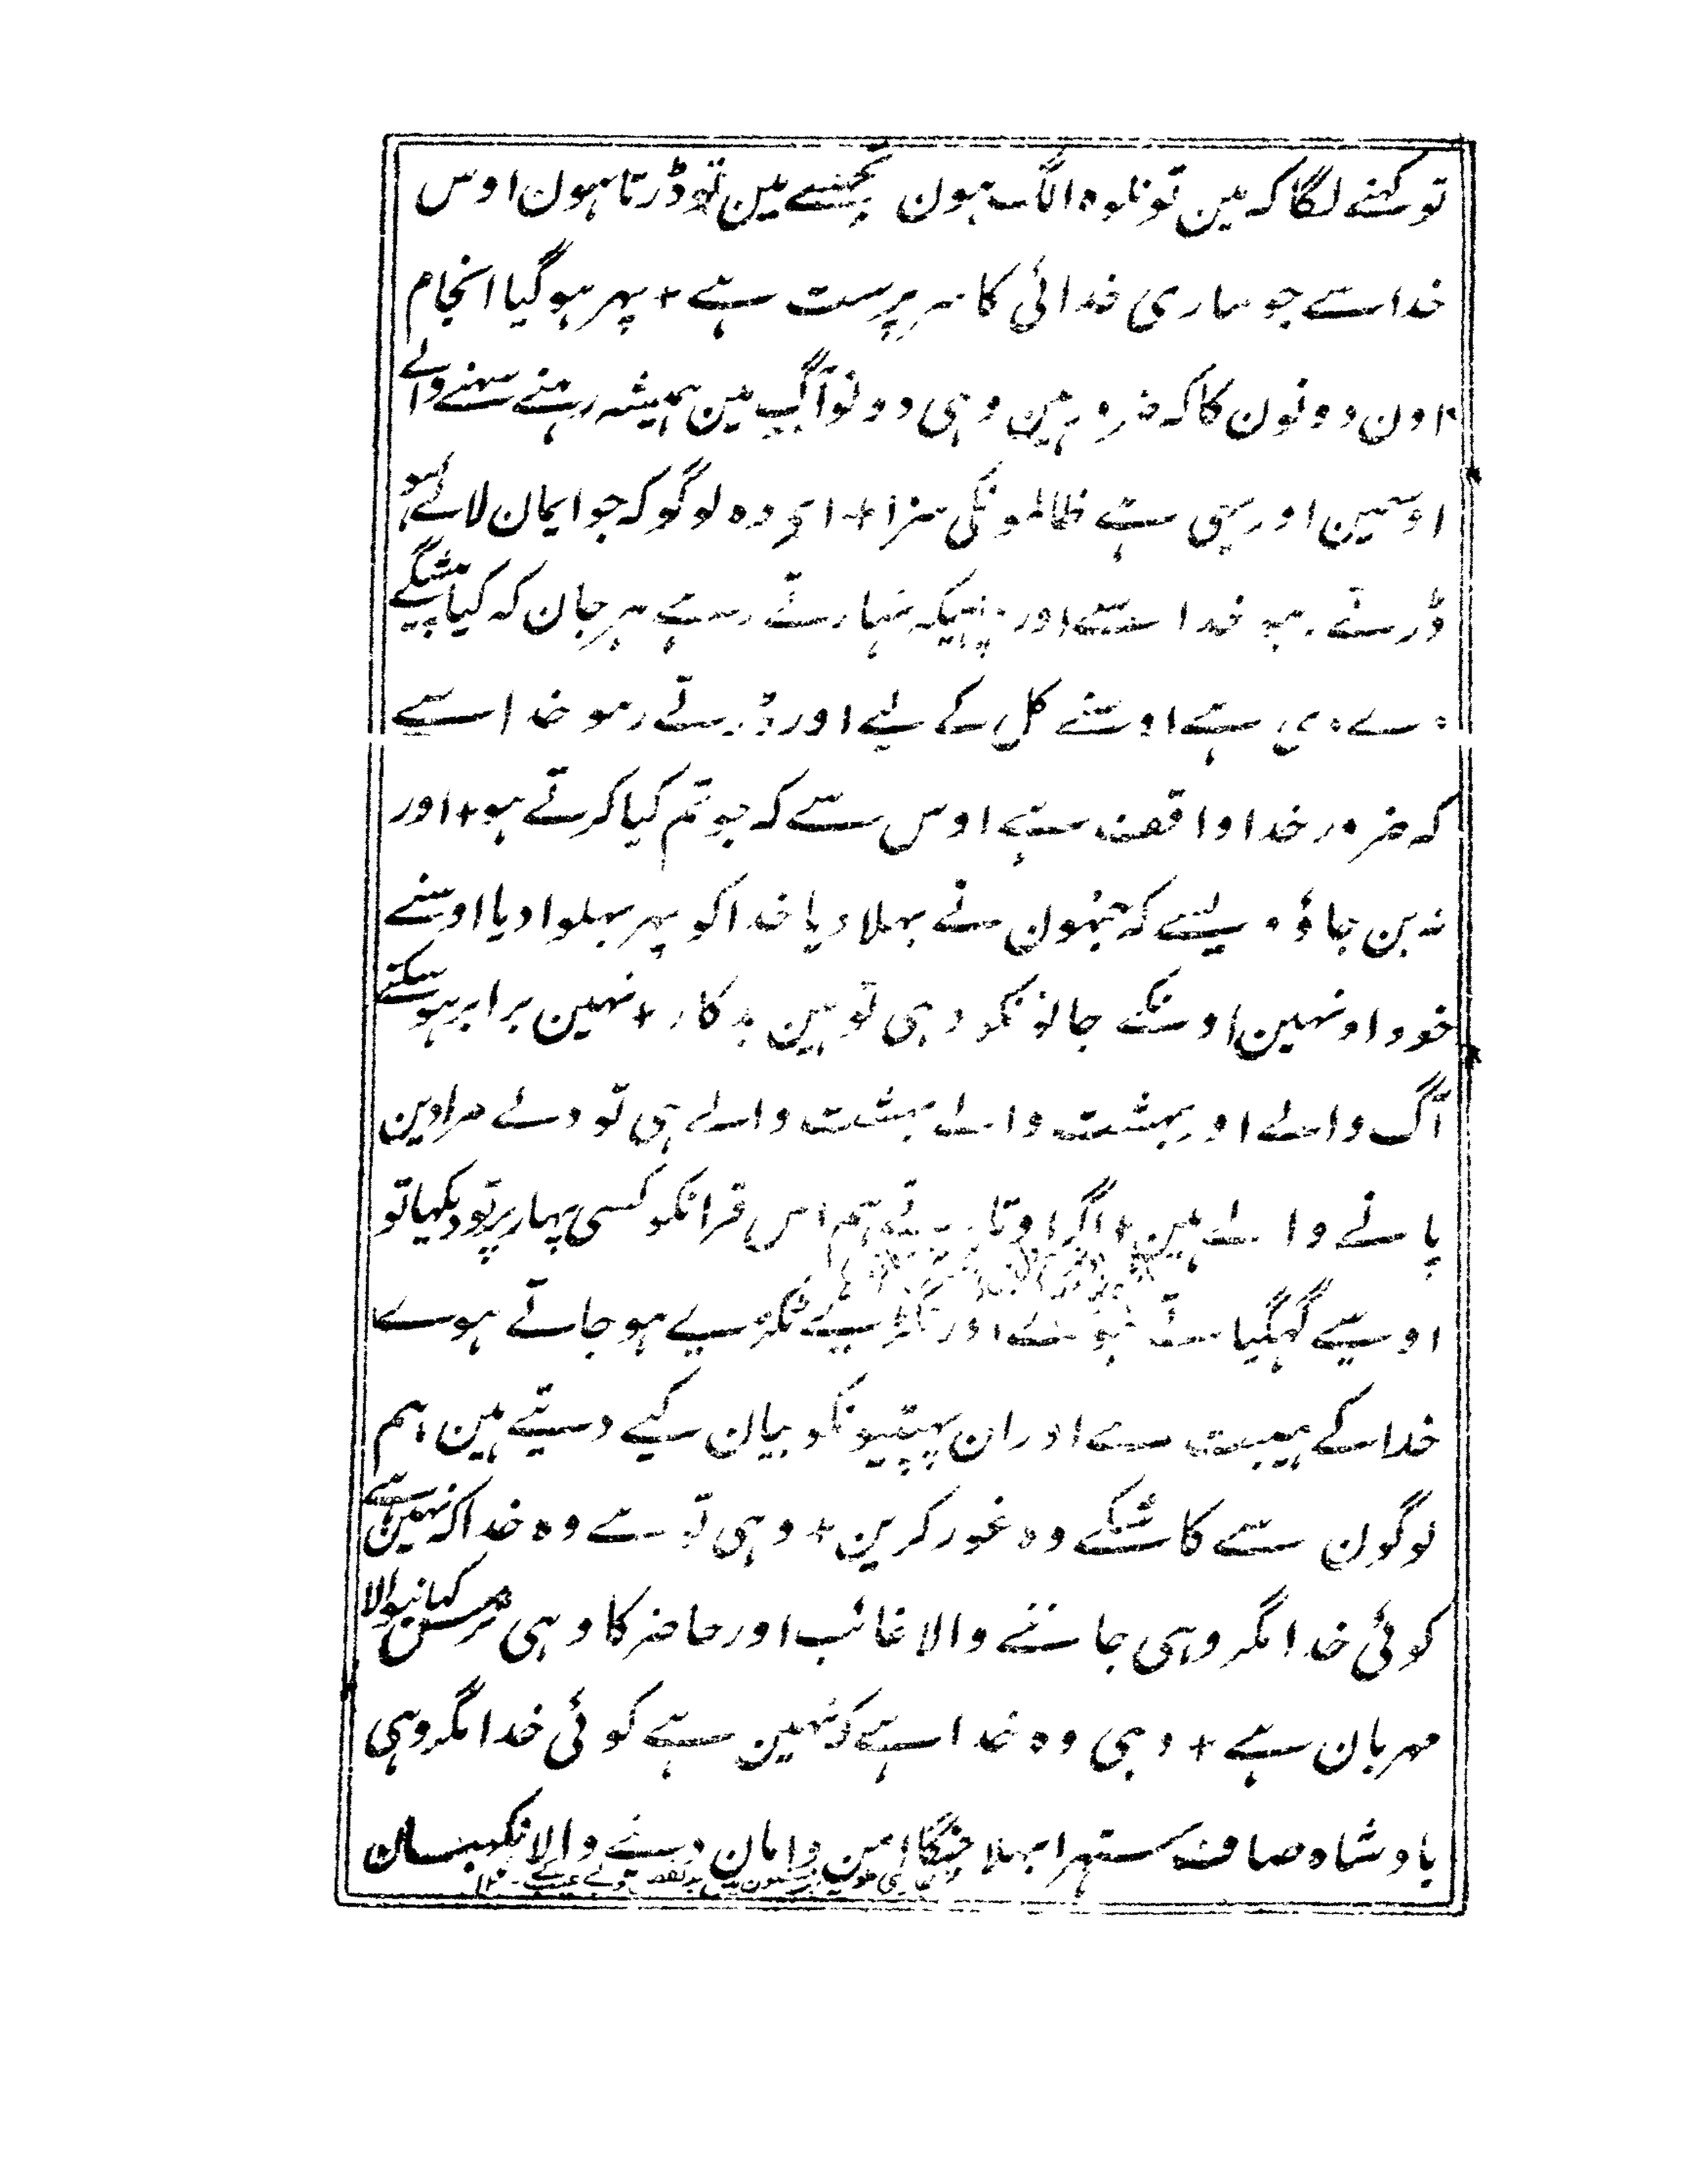 تو کہنے لگا کہ مین تو نلوہ الگ ہون تجھسے مین تو ڈرتا ہون اوس
خدا سے جو ساری خدائی کا سرپرست ہے + پہر ہو گیا انجام
اون دونون کا کہ ضرور ہین وہی دونو آگ مین ہمیشہ رہنے سہنے والے
اوسمین اور یہی ہے ظالمونکی سزا + ای وہ لوگو کہ جو ایمان لائے ہو
ڈرتے رہو خدا سے اور نہارتے رہے ہر جان کہ کیا پیشگے
دے دی ہے اوسنے کل کے لیے اور ڈرتے رہو خدا سے
کہ ضرور خدا واقف ہے اوس سے کہ جو تم کیا کرتے ہو + اور
نہ بن جاؤ ویسے کہ جنہون نے بہلا دیا خدا کو پہر بہلوا دیا اوسنے
خود اونہین اونکے جانونکو وہی تو ہین بدکار + نہین برابر ہو سکتے
آگ والے اور بہشت والے بہشت والے ہی تو دلے مرادین
پانے والے ہین + اگر اوتارتے ہم اس قرانکو کسی پہاڑ پر تو دیکہیا تو
اوسے گہگیاتے ہوئے اور ٹکڑیے ٹکڑیے ہو جاتے ہوے
خدا کے ہیبت سے اور ان پہپتیونکو بیان کیے دیتے ہین ہم
لوگون سے کاشکے وہ غور کرین + وہی تو ہے وہ خدا کہ نہین ہے
کوئی خدا مگر وہی جاننے والا غائب اور حاضر کا وہی ترس کہانیوالا
مہربان ہے + وہی وہ خدا ہے کہ نہین ہے کوئی خدا مگر وہی
بادشاہ صاف ستہرا بہلا چنگا امن وامان دینے والا نگہبان